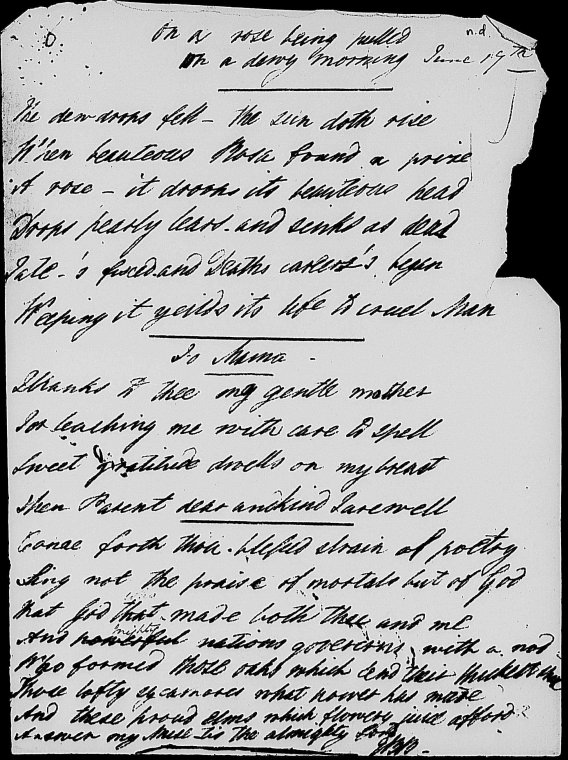 n.d.
On a rose being pulled
on a dewy morning June 19th
The dew drops fell - the sun doth rise
When beauteous Rosa found a prize
A rose - it droops its beauteous head
Drops pearly tears - and sinks as dead
Fate -'s fixed and Deaths begun
Weeping it yeilds its life to cruel Man
To Mama -
Thanks to thee my gentle mother
For teaching me with care to spell
Sweet gratitude dwells on my breast
Then Parent dear and kind Farewell
Come forth thou - blessed strain of poetry
Sing not the praise of mortals but of God
that God that made both thee and me
And mighty nations governs with a nod
Who formed those oaks which lend their thickest
Those lofty sycamores what power has made
And these proud elms which flowery juice afford
Answer my Muse tis the almighty Lord